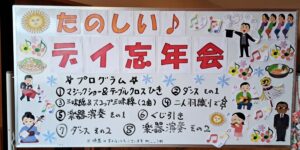 たのしい♪
デイ忘年会
☆プログラム☆
①マジックショー&テーブルクロスひき ②ダンス その1
③三味線&スコップ三味線(2曲) ④二人羽織り
⑤楽器演奏 その1 ⑥くじ引き
⑦ダンス その2 ⑧楽器演奏 その2